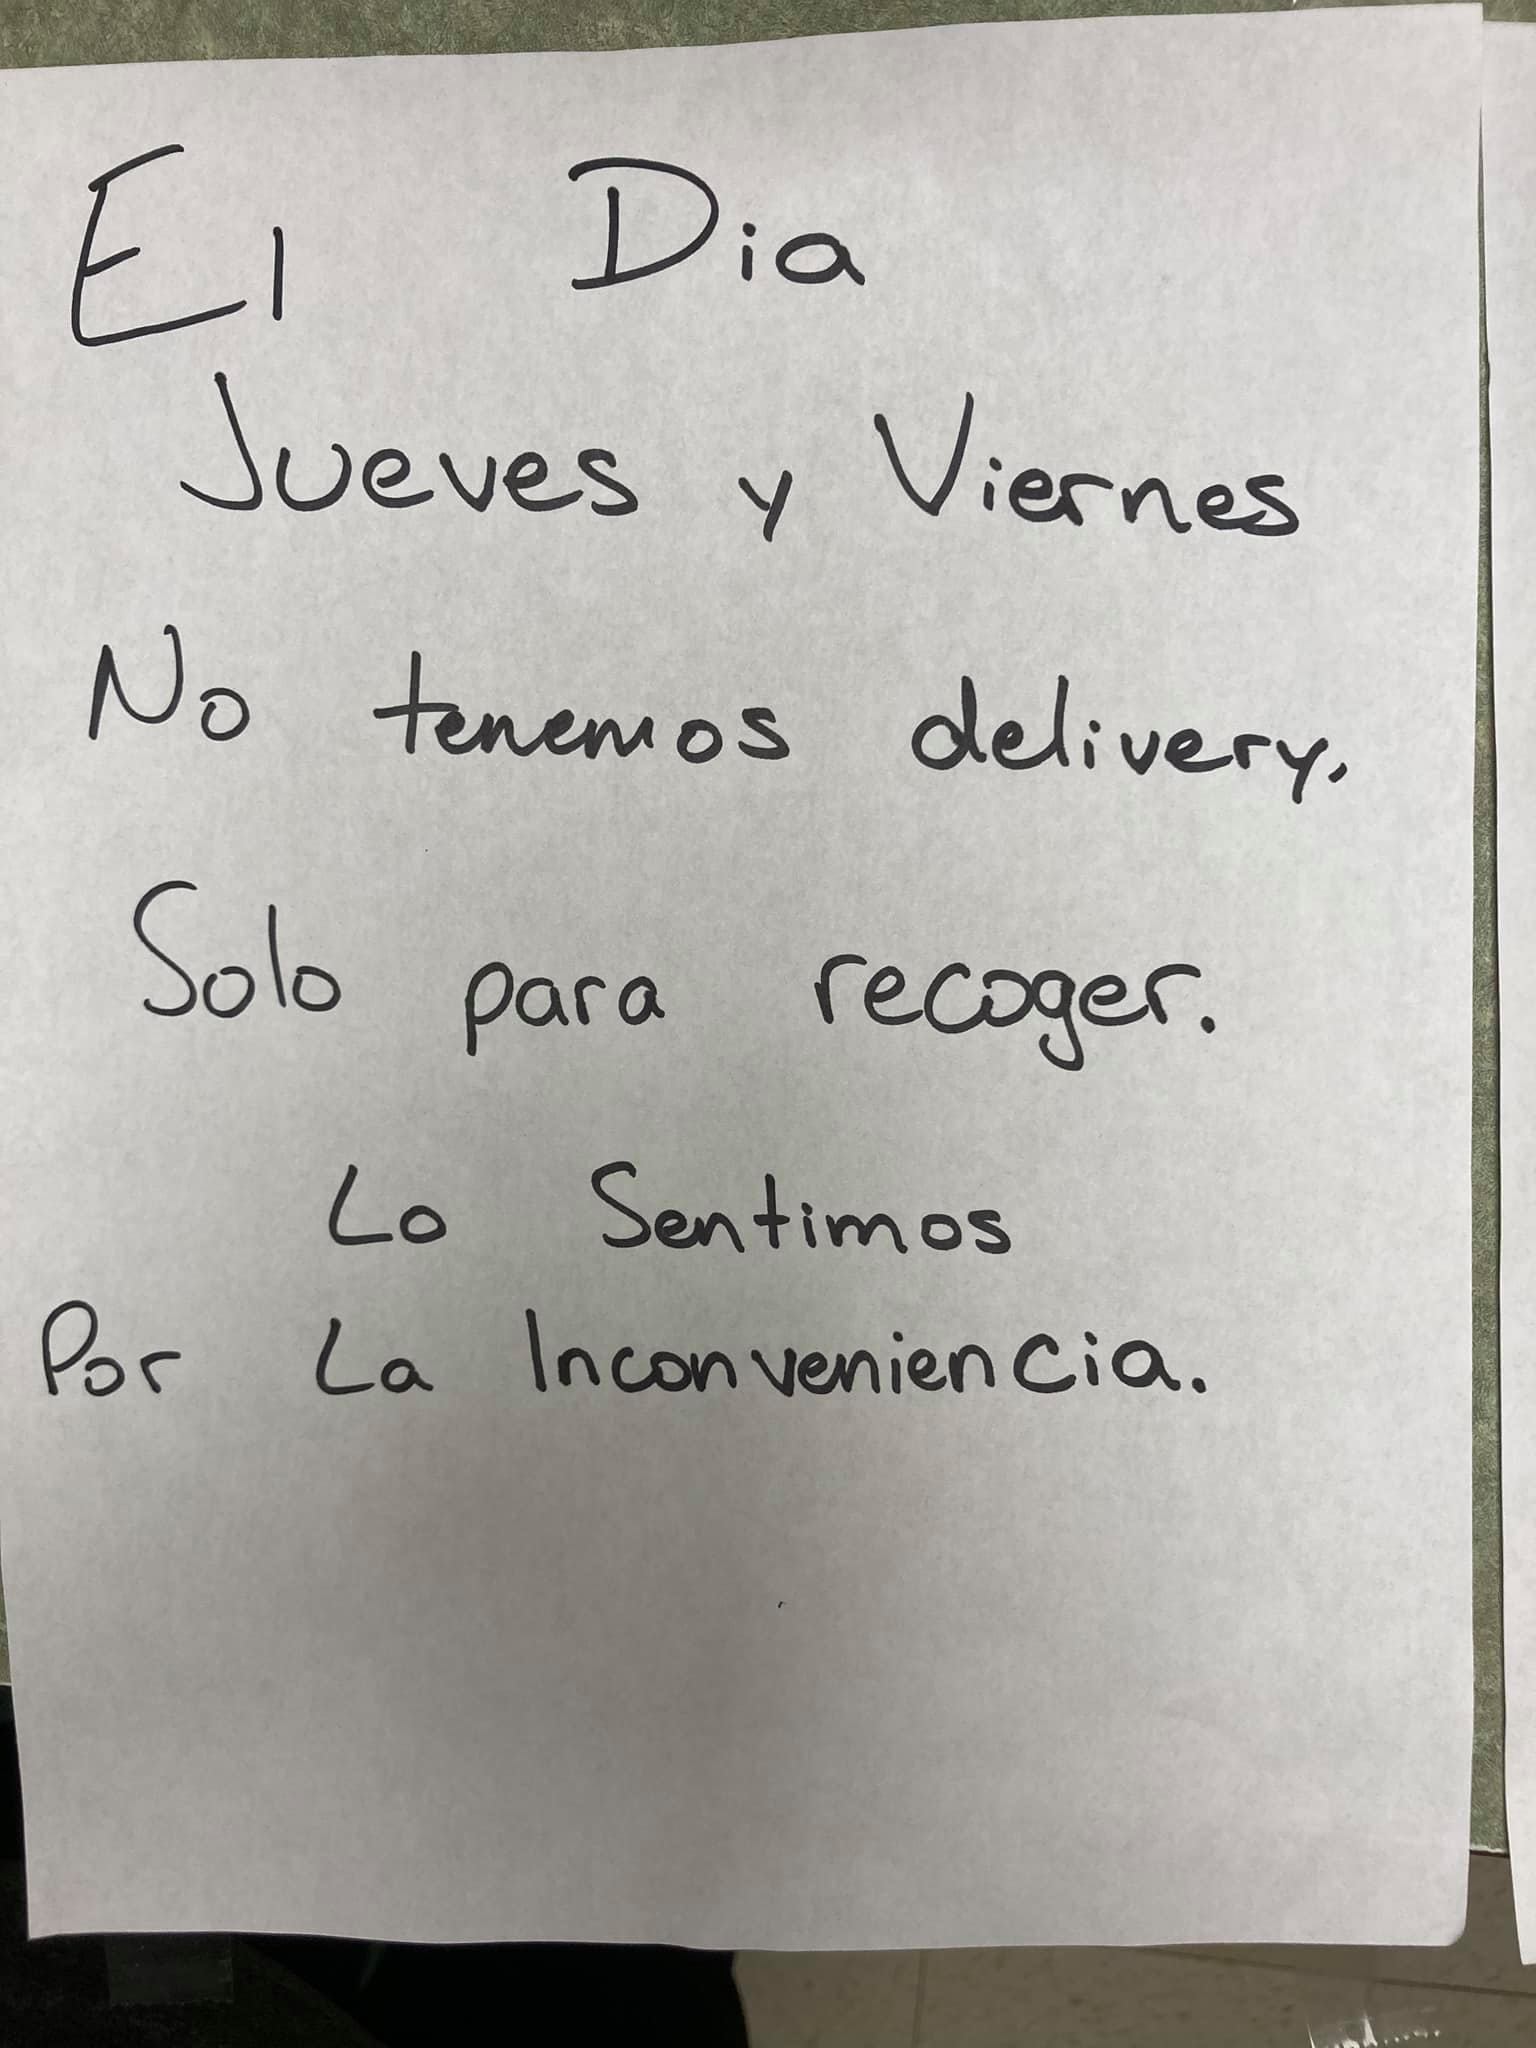 El Dia
Jueves y Viernes
No tenemos delivery.
Solo para recoger.
Lo Sentimos
Por La Inconveniencia.